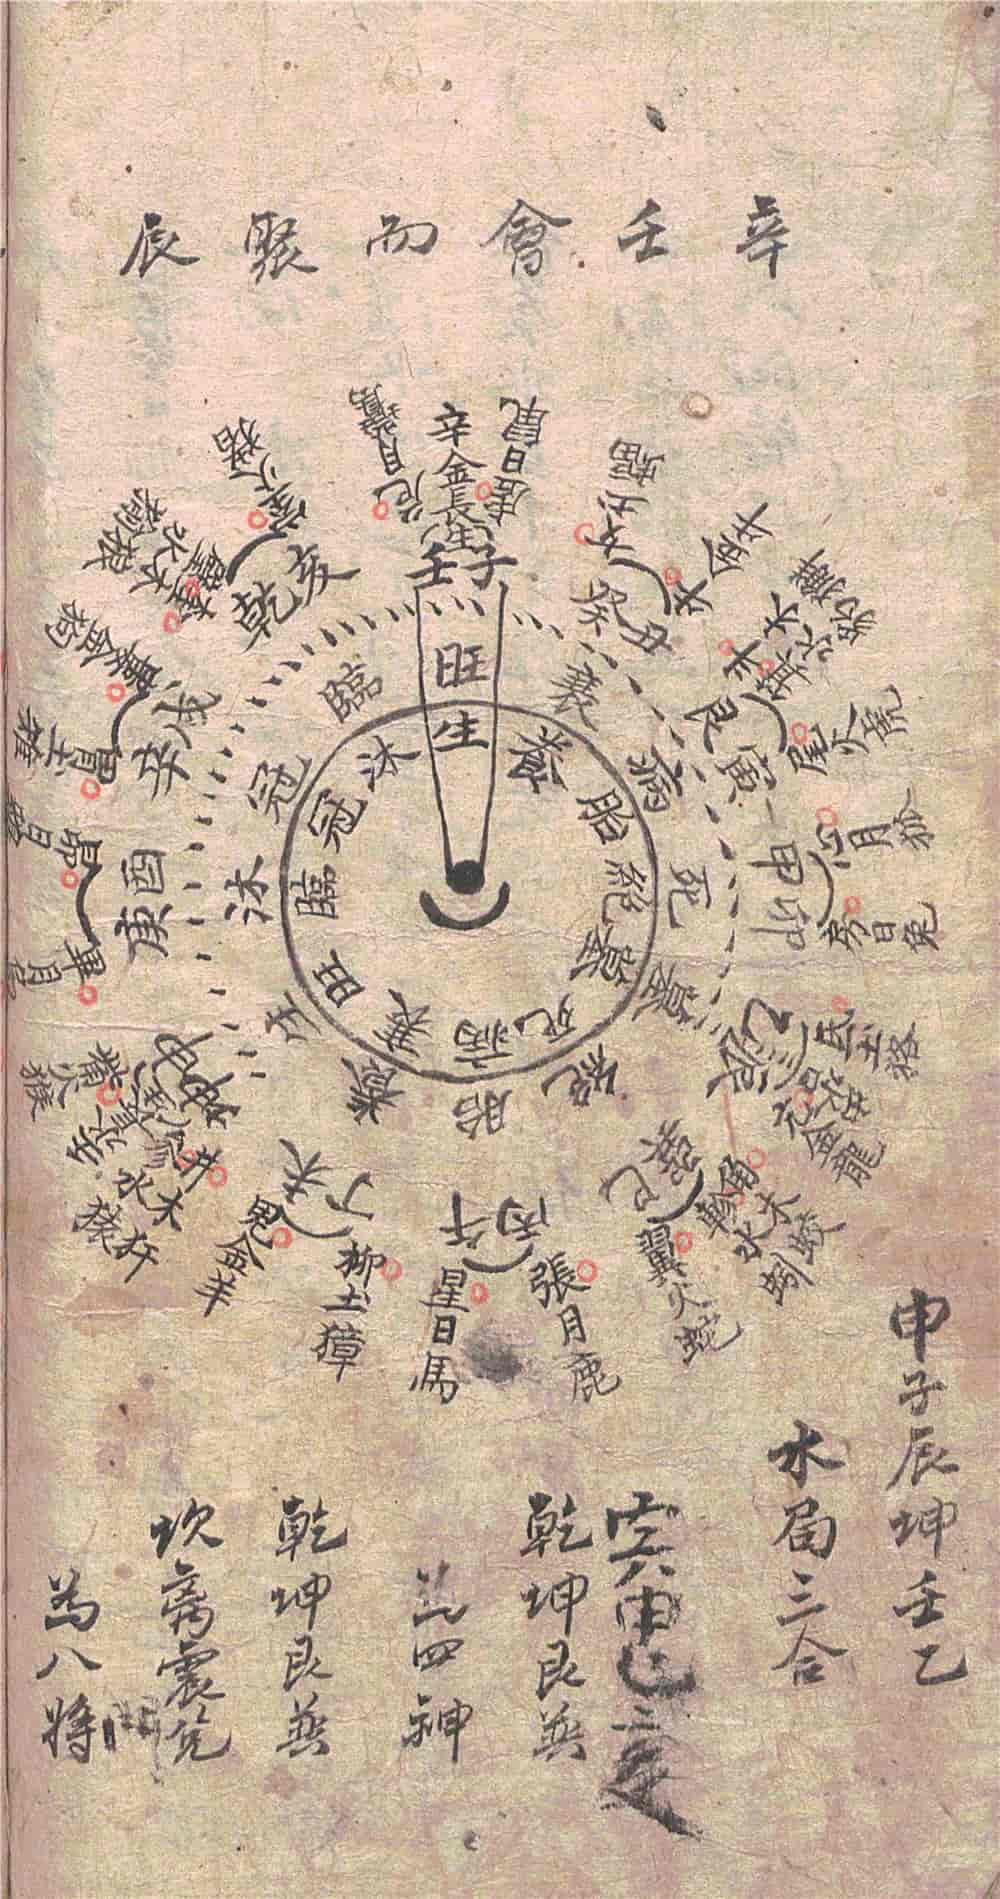 辛壬會而聚辰
辛金長生
壬子
癸丑
艮寅
甲卯
乙辰
巽巳
丙午
丁未
坤申
庚酉
辛戌
乾亥
虛日鼠
女土蝠
牛金牛
斗木獬
箕水豹
尾火虎
心月狐
房日兔
氐土狢
亢金龍
角木蛟
軫水蚓
翼火蛇
張月鹿
星日馬
柳土獐
鬼金羊
井木犴
參水猿
觜火猴
畢月烏
昴日雞
胃土雉
婁金狗
奎木狼
壁水
室火猪
危月燕
旺
衰
病
死
墓
絕
胎
養
生
沐
冠
臨
生
養
胎
絕
墓
死
病
衰
旺
臨
冠
沐
申子辰坤壬乙
水局三合
寅申巳亥
乾坤艮巽
為四神
乾坤艮巽
坎离震兌
為八將